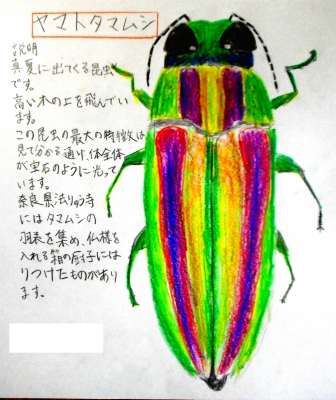 ヤマトタマムシ
説明
真夏に出てくる昆虫
です。
高い木の上を飛んでい
ます。
この昆虫の最大の特徴は
見て分かる通り、体全体
が宝石のように光って
います。
奈良県法りゅう寺
にはタマムシの
羽表を集め、仏様を
入れる箱の厨子には
りつけたものがあり
ます。